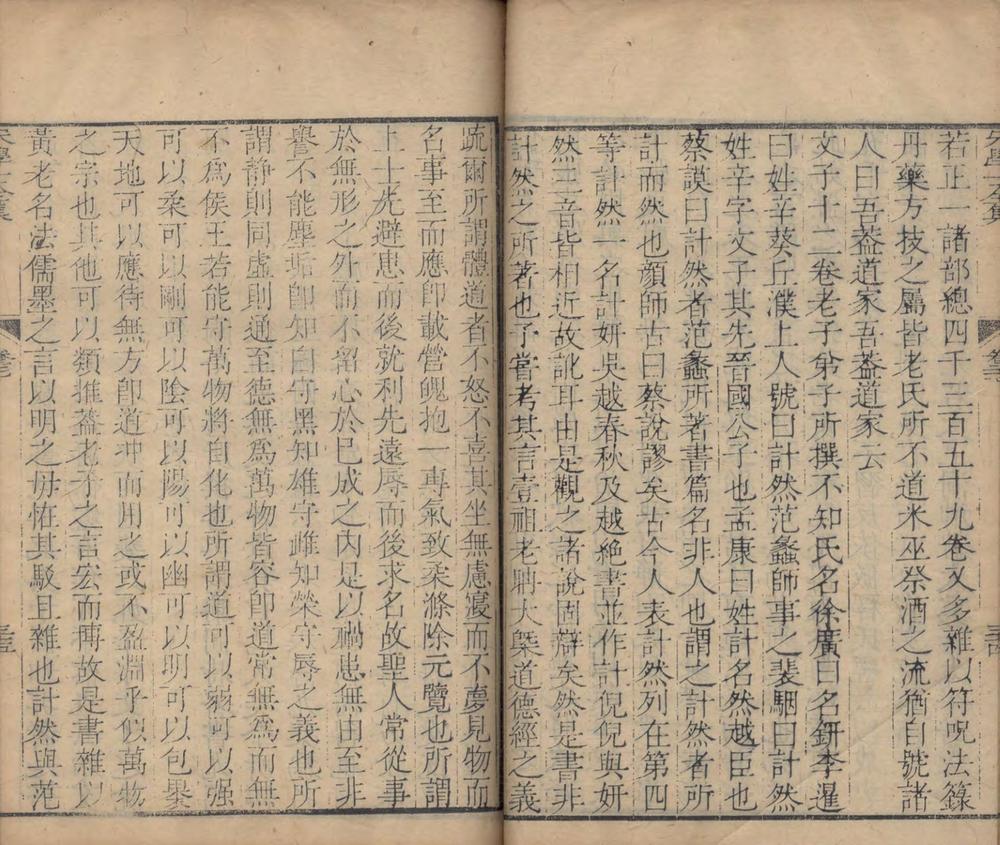 若正一諸部總四千三百五十九卷又多雜以符呪法籙
丹藥方技之屬皆老氏所不道米巫祭酒之流猶自號諸
人曰吾葢道家吾葢道家云
文子十二卷老子弟子所撰不知氏名徐廣曰名鈃李暹
曰姓辛葵丘濮上人號曰計然范蠡師事之裴駰曰計然
姓辛字文子其先晉國公子也孟康曰姓計名然越臣也
蔡謨曰計然者范蠡所著書篇名非人也謂之計然者所
計而然也顔師古曰蔡說謬矣古今人表計然列在第四
等計然一名計妍吳越春秋及越絶書並作計倪倪與妍
然三音皆相近故訛耳由是觀之諸說固辯矣然是書非
計然之所著也予嘗考其言壹祖老聃大槩道德經之義
䟽爾所謂體道者不怒不喜其坐無慮寢而不夢見物而
名事至而應即載營魄抱一專氣致柔滌除元覽也所謂
上士先避患而後就利先遠辱而後求名故聖人常從事
於無形之外而不留心於巳成之內是以禍患無由至非
譽不能塵垢即知白守黑知雄守雌知榮守辱之義也所
謂静則同虛則通至德無爲萬物皆容即道常無爲而無
不爲侯王若能守萬物將自化也所謂道可以弱可以强
可以柔可以剛可以陰可以陽可以幽可以明可以包褁
天地可以應待無方即道冲而用之或不盈淵乎似萬物
之宗也其他可以類推葢老子之言宏而博故是書雜以
黃老名法儒墨之言以明之毋恠其駁且雜也計然與范